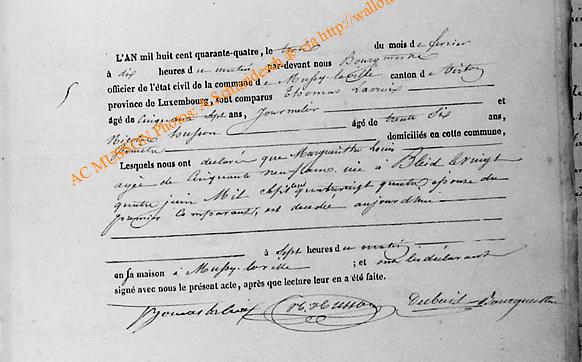 L'AN mil huit cent quarante-quatre, le trois du mois de février
à dix heures du matin par-devant nous Bourgmestre
officier de l'état civil de la commune de Mussy-la-ville canton de Virton
province de Luxembourg, sont comparus Thomas Lacroix
âgé de cinquante sept ans, journalier et
Nicolas husson âgé de trente six ans,
domiciliés en cette commune,
Lesquels nous ont déclaré que Margueritte Louis
agée de Cinquante neuf ans née à Bleid le vingt
quatre juin Mil Sept cent quatrevingt quatre épouse du
premier Comparant, est decedée aujourd'hui
à sept heures du matin
en sa maison à Mussy-la-ville ; et ont les déclarant
signé avec nous le présent acte, après que lecture leur en a été faite.
Thomas lacroix N. Husson Bourguemestre
AC MUSSON Photos: A. Schneiders via http://wallo